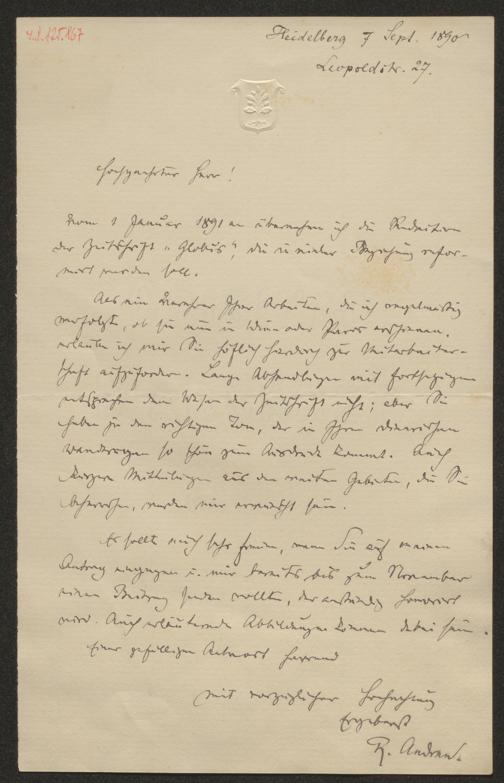 Heidelberg 7 Sept. 1890
Leopoldstr. 27.
Hochgeehrter Herr!
Vom 1 Januar 1891 an übernehme ich die Redaktion
der Zeitschrift "Globus", die in vieler Beziehung refor-
mirt werden soll.
Als ein Verehrer Ihrer Arbeiten, die ich regelmäßig
verfolgte, ob sie nun in Wien oder Paris erschienen,
erlaube ich mir Sie höflich hierdurch zur Mitarbeiter-
schaft aufzufordern. Lange Abhandlungen mit Fortsetzungen
entsprechen dem Wesen der Zeitschrift nicht; aber Sie
haben ja den richtigen Ton, der in Ihren dinarischen
Wanderungen so schön zum Ausdruck kommt. Auch
kürzere Mittheilungen aus den weiten Gebieten, die Sie
beherrschen, würden mir erwünscht sein.
Es sollte mich sehr freuen, wenn Sie auf meinen
Antrag eingingen u. mir bereits bis zum November
einen Beitrag senden wollten, der anständig honorirt
wird. Auch erläuternde Abbildungen können dabei sein.
Einer gefälligen Antwort harrend
mit vorzüglicher Hochachtung
Ergebenst
R. Andree.